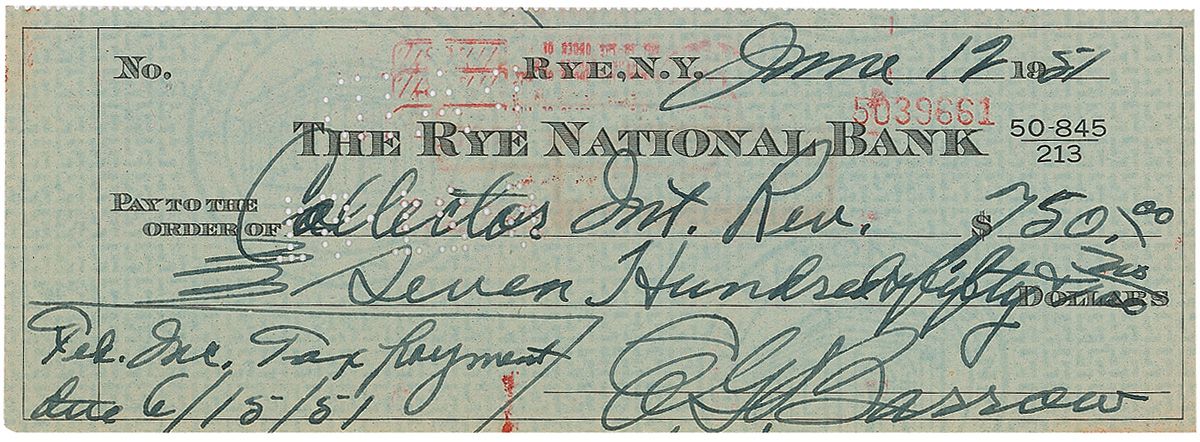 No. RYE, N.Y. June 12 1951
5039661
THE RYE NATIONAL BANK 50-845/213
PAY TO THE ORDER OF Collector Int. Rev. $ 750.00
Seven Hundred fifty & no/100 DOLLARS
Fed. Inc. Tax payment
due 6/15/51
E G Barrow